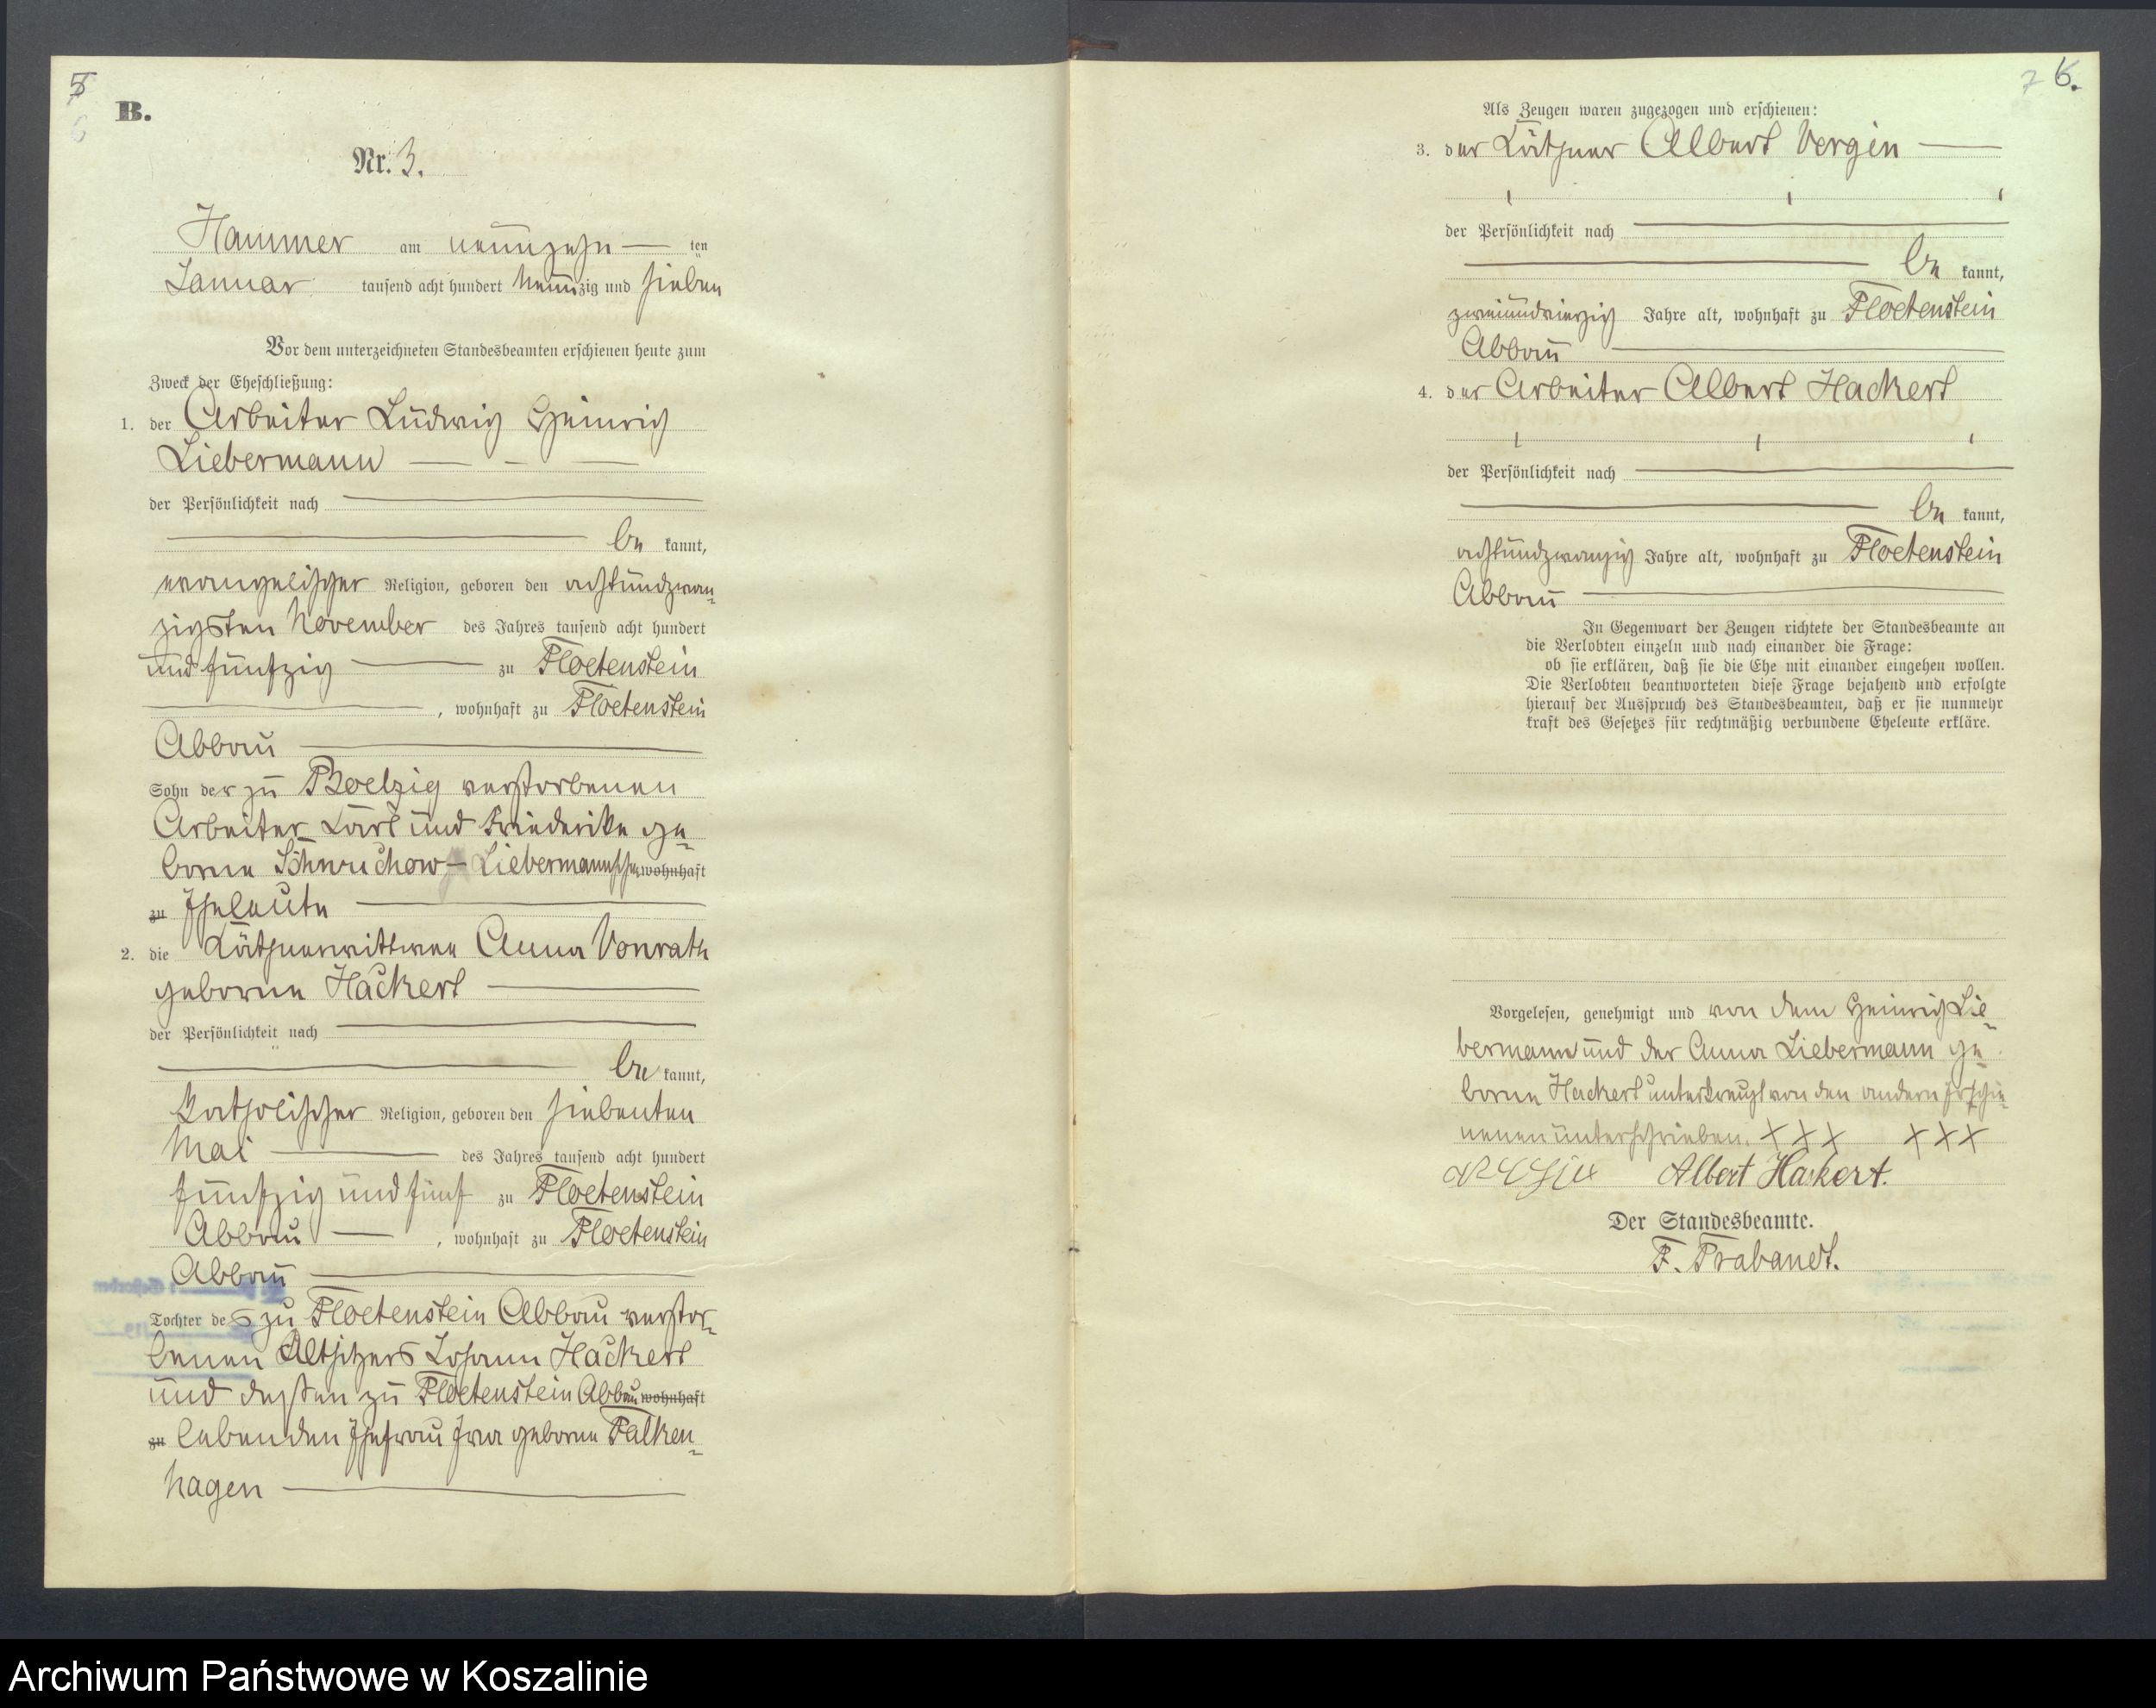 5
6
B.
Nr. 3.
Hammer am neunzehn ten
Januar tausend acht hundert neunzig und sieben
Vor dem unterzeichneten Standesbeamten erschienen heute zum
Zweck der Eheschließung:
1. der Arbeiter Ludwig Heinrich
Liebermann
der Persönlichkeit nach
be kannt,
evangelischer Religion, geboren den achtundzwan-
zigsten November des Jahres tausend acht hundert
und fünfzig zu Floetenstein
, wohnhaft zu Floetenstein
Abbau
Sohn der zu Poelzig verstorbenen
Arbeiter Carl und Friederike ge-
borne Liebermannschen wohnhaft
zu Eheleute
2. die Käthnerwittwe Anna Vonrath
geborne Hackert
der Persönlichkeit nach
be kannt,
katholischer Religion, geboren den siebenten
Mai des Jahres tausend acht hundert
fünfzig und fünf zu Floetenstein
Abbau , wohnhaft zu Floetenstein
Abbau
Tochter des zu Floetenstein Abbau verstor-
benen Altsitzers Johann Hackert
und dessen zu Floetenstein Abbau wohnhaft
zu lebenden Ehefrau Eva geborne Falken-
hagen
7 6.
Als Zeugen waren zugezogen und erschienen:
3. der Käthner Albert Vergin
der Persönlichkeit nach
be kannt,
zweiundvierzig Jahre alt, wohnhaft zu Floetenstein
Abbau
4. der Arbeiter Albert Hackert
der Persönlichkeit nach
be kannt,
achtundzwanzig Jahre alt, wohnhaft zu Floetenstein
Abbau
In Gegenwart der Zeugen richtete der Standesbeamte an
die Verlobten einzeln und nach einander die Frage:
ob sie erklären, daß sie die Ehe mit einander eingehen wollen.
Die Verlobten beantworteten diese Frage bejahend und erfolgte
hierauf der Ausspruch des Standesbeamten, daß er sie nunmehr
kraft des Gesetzes für rechtmäßig verbundene Eheleute erkläre.
Vorgelesen, genehmigt und von dem Heinrich Lie-
bermann und der Anna Liebermann ge-
borne Hackert unterkreuzt von den andern Erschie-
nenen unterschrieben. XXX XXX
Albert Hackert.
Der Standesbeamte.
F. Prabandt.
Archiwum Państwowe w Koszalinie